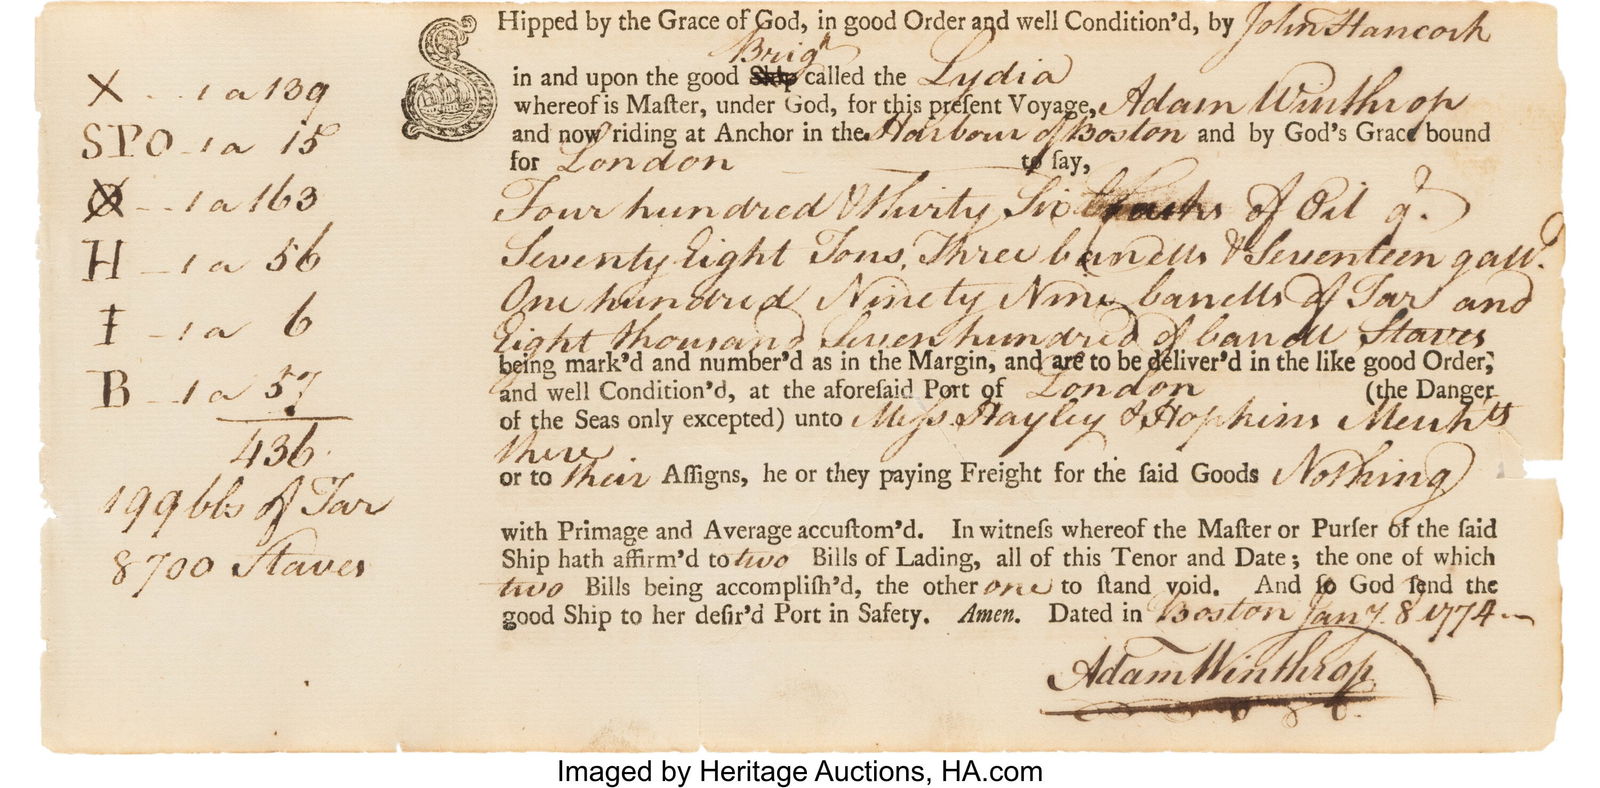 X - - 1 a 139
SPO - 1 a 15
Ø - - 1 a 163
H - 1 a 56
I - 1 a 6
B - 1 a 57
436
199 bbs of Tar
8700 Staves
SHipped by the Grace of God, in good Order and well Condition'd, by John Hancock
Brign
in and upon the good Ship called the Lydia
whereof is Maſter, under God, for this preſent Voyage, Adam Winthrop
and now riding at Anchor in the Harbour of Boston and by God's Grace bound
for London to ſay,
Four hundred & thirty Six Casks of Oil qt.
Seventy Eight Tons, Three barrells & Seventeen galls.
One hundred Ninety Nine barrells of Tar and
Eight thousand Seven hundred of barrell Staves
being mark'd and number'd as in the Margin, and are to be deliver'd in the like good Order,
and well Condition'd, at the aforeſaid Port of London (the Danger
of the Seas only excepted) unto Messs Hayley & Hopkins Merchts
there
or to their Aſſigns, he or they paying Freight for the ſaid Goods Nothing
with Primage and Average accuſtom'd. In witneſs whereof the Maſter or Purſer of the ſaid
Ship hath affirm'd to two Bills of Lading, all of this Tenor and Date; the one of which
two Bills being accompliſh'd, the other one to ſtand void. And ſo God ſend the
good Ship to her deſir'd Port in Safety. Amen. Dated in Boston Jany. 8 1774
Adam Winthrop
Imaged by Heritage Auctions, HA.com